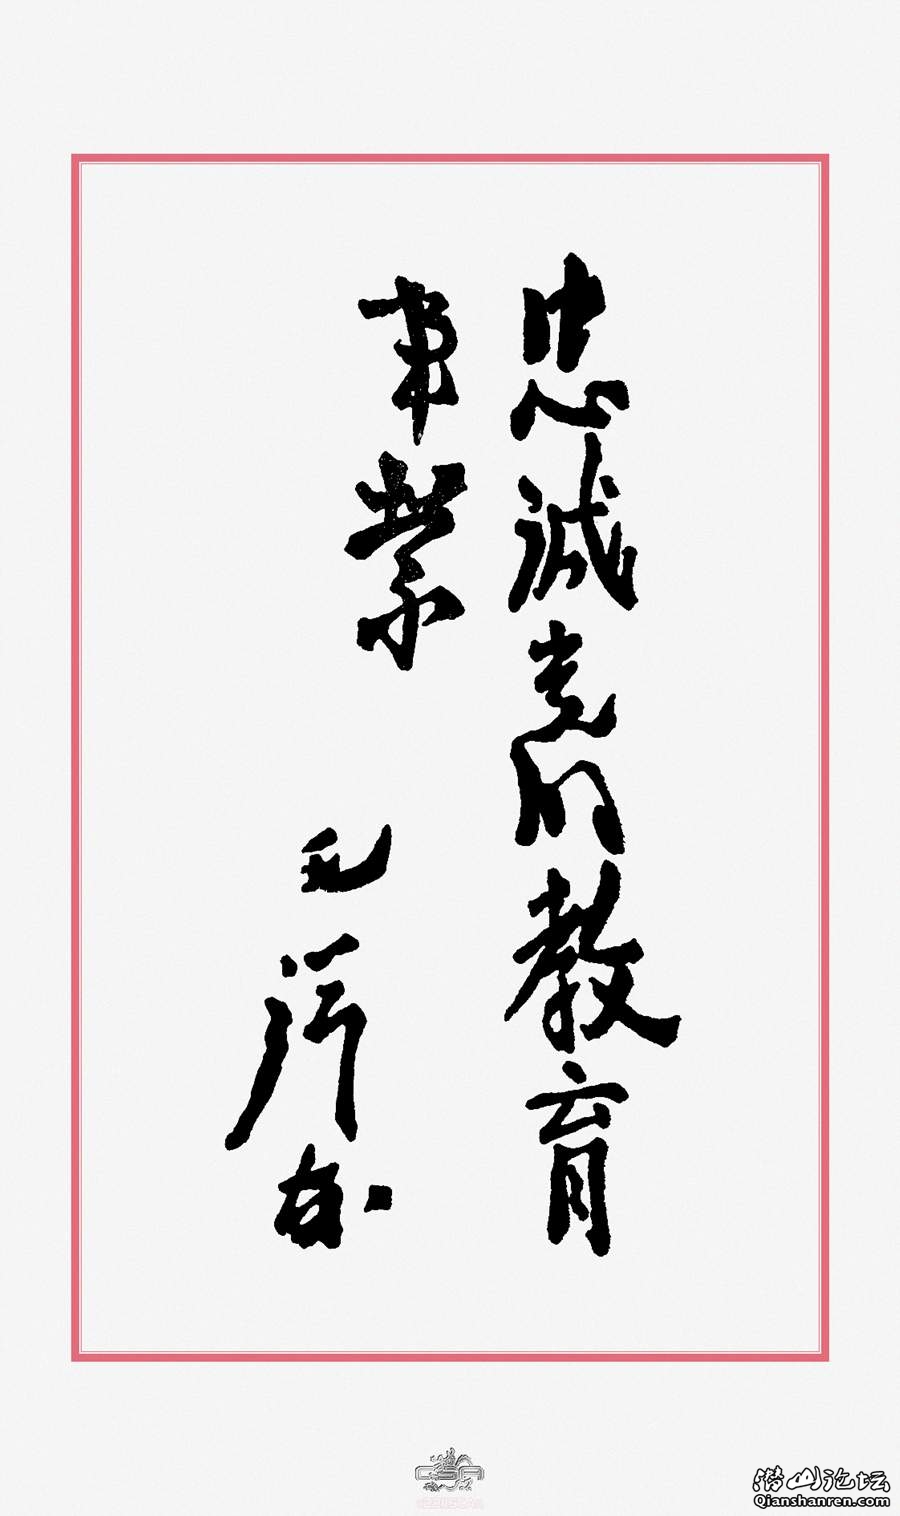 忠诚党的教育
事業
毛泽东
潜山论坛
Qianshanren.com